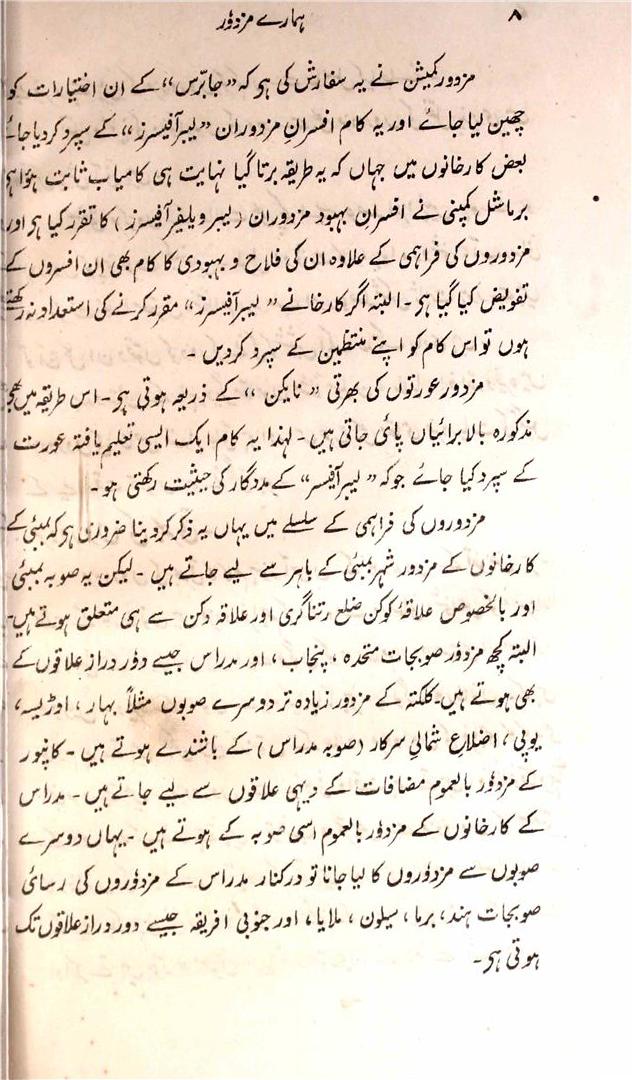 ۸ ہمارے مزدور
مزدور کمیشن نے یہ سفارش کی ہو کہ “جابرّس” کے ان اختیارات کو
چھین لیا جائے اور یہ کام افسرانِ مزدوران “لیبر آفیسرز” کے سپرد کر دیا جائے
بعض کارخانوں میں جہاں کہ یہ طریقہ برتا گیا نہایت ہی کامیاب ثابت ہؤا ہو
برما شل کمپنی نے افسرانِ بہبود مزدوران (لیبر ویلفیر آفیسرز) کا تقرر کیا ہو اور
مزدوروں کی فراہمی کے علاوہ ان کی فلاح و بہبودی کا کام بھی ان افسروں کے
تفویض کیا گیا ہو۔ البتہ اگر کارخانے “لیبر آفیسرز” مقرر کرنے کی استعداد نہ رکھتے
ہوں تو اس کام کو اپنے منتظمین کے سپرد کر دیں۔
مزدور عورتوں کی بھرتی “نایکن” کے ذریعہ ہوتی ہو۔ اس طریقہ میں بھی
مذکورہ بالا برائیاں پائی جاتی ہیں۔ لہذا یہ کام ایک ایسی تعلیم یافتہ عورت
کے سپرد کیا جائے جو کہ “لیبر آفیسر” کے مددگار کی حیثیت رکھتی ہو۔
مزدوروں کی فراہمی کے سلسلے میں یہاں یہ ذکر کر دینا ضروری ہو کہ بمبئی کے
کارخانوں کے مزدور شہر بمبئی کے باہر سے لیے جاتے ہیں۔ لیکن یہ صوبہ بمبئی
اور بالخصوص علاقہٴ کوکن ضلع رتناگری اور علاقہ دکن سے ہی متعلق ہوتے ہیں۔
البتہ کچھ مزدور صوبجات متحدہ، پنجاب، اور مدراس جیسے دور دراز علاقوں کے
بھی ہوتے ہیں۔ کلکتہ کے مزدور زیادہ تر دوسرے صوبوں مثلاً بہار، اوڑیسہ،
یوپی، اضلاعِ شمالی سرکار (صوبہ مدراس) کے باشندے ہوتے ہیں۔ کانپور
کے مزدور بالعموم مضافات کے دیہی علاقوں سے لیے جاتے ہیں۔ مدراس
کے کارخانوں کے مزدور بالعموم اسی صوبہ کے ہوتے ہیں۔ یہاں دوسرے
صوبوں سے مزدوروں کا لیا جانا تو درکنار مدراس کے مزدوروں کی رسائی
صوبجات ہند، برما، سیلون، ملایا، اور جنوبی افریقہ جیسے دور دراز علاقوں تک
ہوتی ہو۔